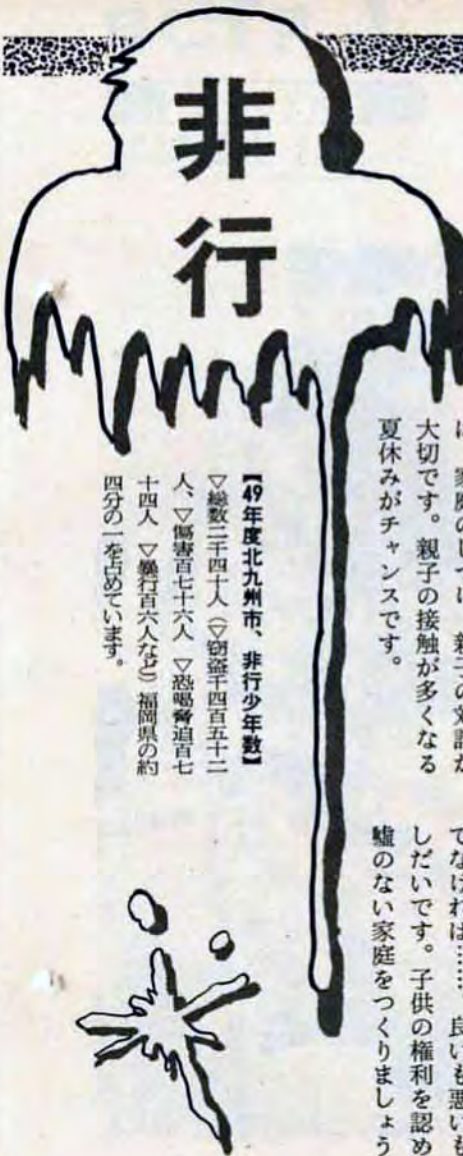 非行
大切です。親子の接触が多くなる
夏休みがチャンスです。
でなければ……良いも悪いも
しだいです。子供の権利を認め
嘘のない家庭をつくりましょう
【49年度北九州市、非行少年数】
▽総数二千四十人（▽窃盗千四百五十二
人、▽傷害百七十六人　▽恐喝脅迫百七
十四人　▽暴行百六人など）福岡県の約
四分の一を占めています。